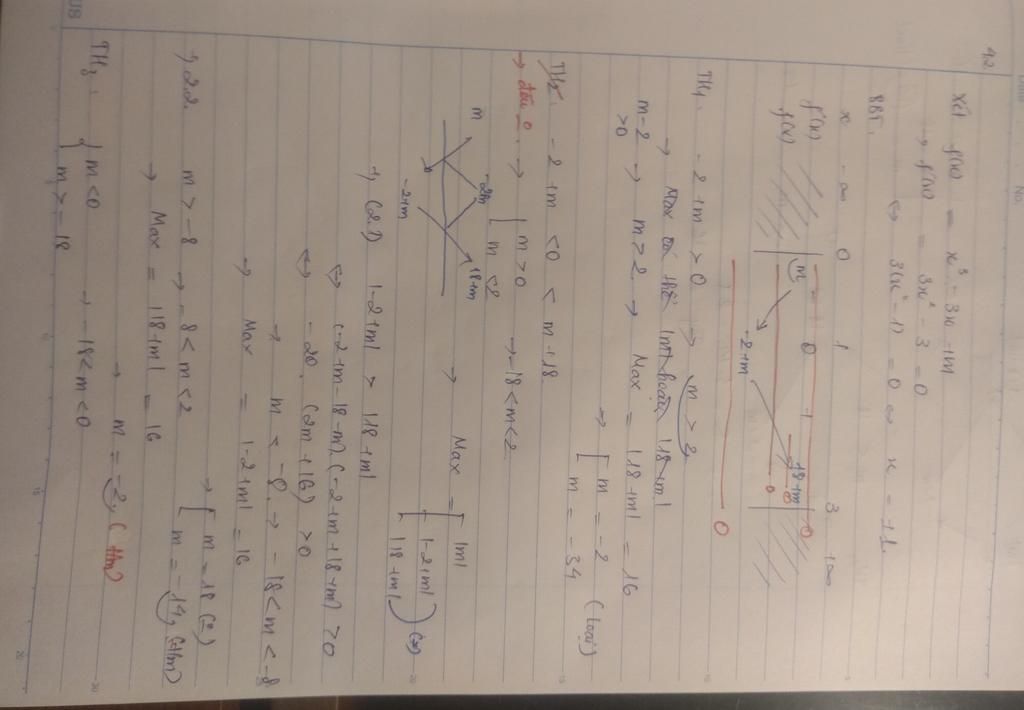 42
Xét f(x) = x³ - 3x + m
→ f'(x) = 3x² - 3 = 0
⇔ 3(x² - 1) = 0 ⇔ x = ±1.
BBT.
x -∞ 0 1 3 +∞
f'(x) - 0 +
f(x) m -2+m 18+m
0
TH1. -2+m > 0 → m > 2.
→ Max có thể |m| hoặc |18+m|
m-2 > 0 → m > 2 → Max = |18+m| = 16
→ [ m = -2 (loại)
m = -34
TH2. -2+m < 0 < m+18.
→ đều 0. → { m > 0 → -18 < m < 2.
m < 2
m -2m 18+m
-2+m
→ Max = [ |m|
|-2+m|
|18+m| (*)
(2.1) |-2+m| > |18+m|
⇔ (-2+m-18-m)(-2+m+18+m) > 0
⇔ -20 (2m+16) > 0
→ m < -8 → -18 < m < -8
→ Max = |-2+m| = 16
→ [ m = 18 (2)
m = -14, (t/m)
2.2. m > -8 → -8 < m < 2
→ Max = |18+m| = 16
→ m = -2, (t/m)
TH3. { m < 0 → -18 < m < 0
m > -18